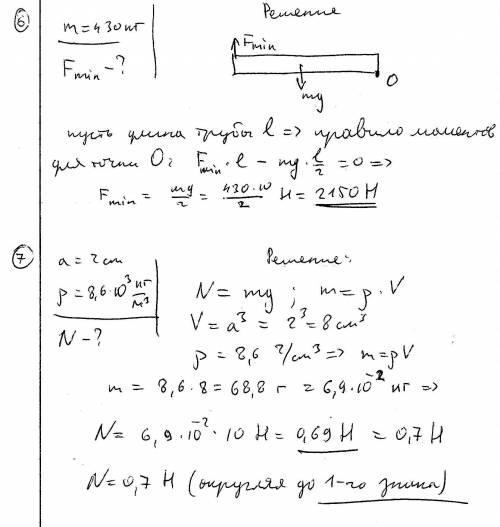 ⑥ m = 430 кг Решение
F_min - ?
F_min
O
mg
пусть длина трубы l => правило моментов
для точки O: F_min · l - mg · l/2 = 0 =>
F_min = mg/2 = 430·10/2 Н = 2150 Н
⑦ a = 2 см Решение:
ρ = 8,6·10³ кг/м³
N = mg ; m = ρ·V
N - ?
V = a³ = 2³ = 8 см³
ρ = 8,6 г/см³ => m = ρV
m = 8,6·8 = 68,8 г = 6,9·10⁻² кг =>
N = 6,9·10⁻²·10 Н = 0,69 Н = 0,7 Н
N = 0,7 Н (округляя до 1-го знака)